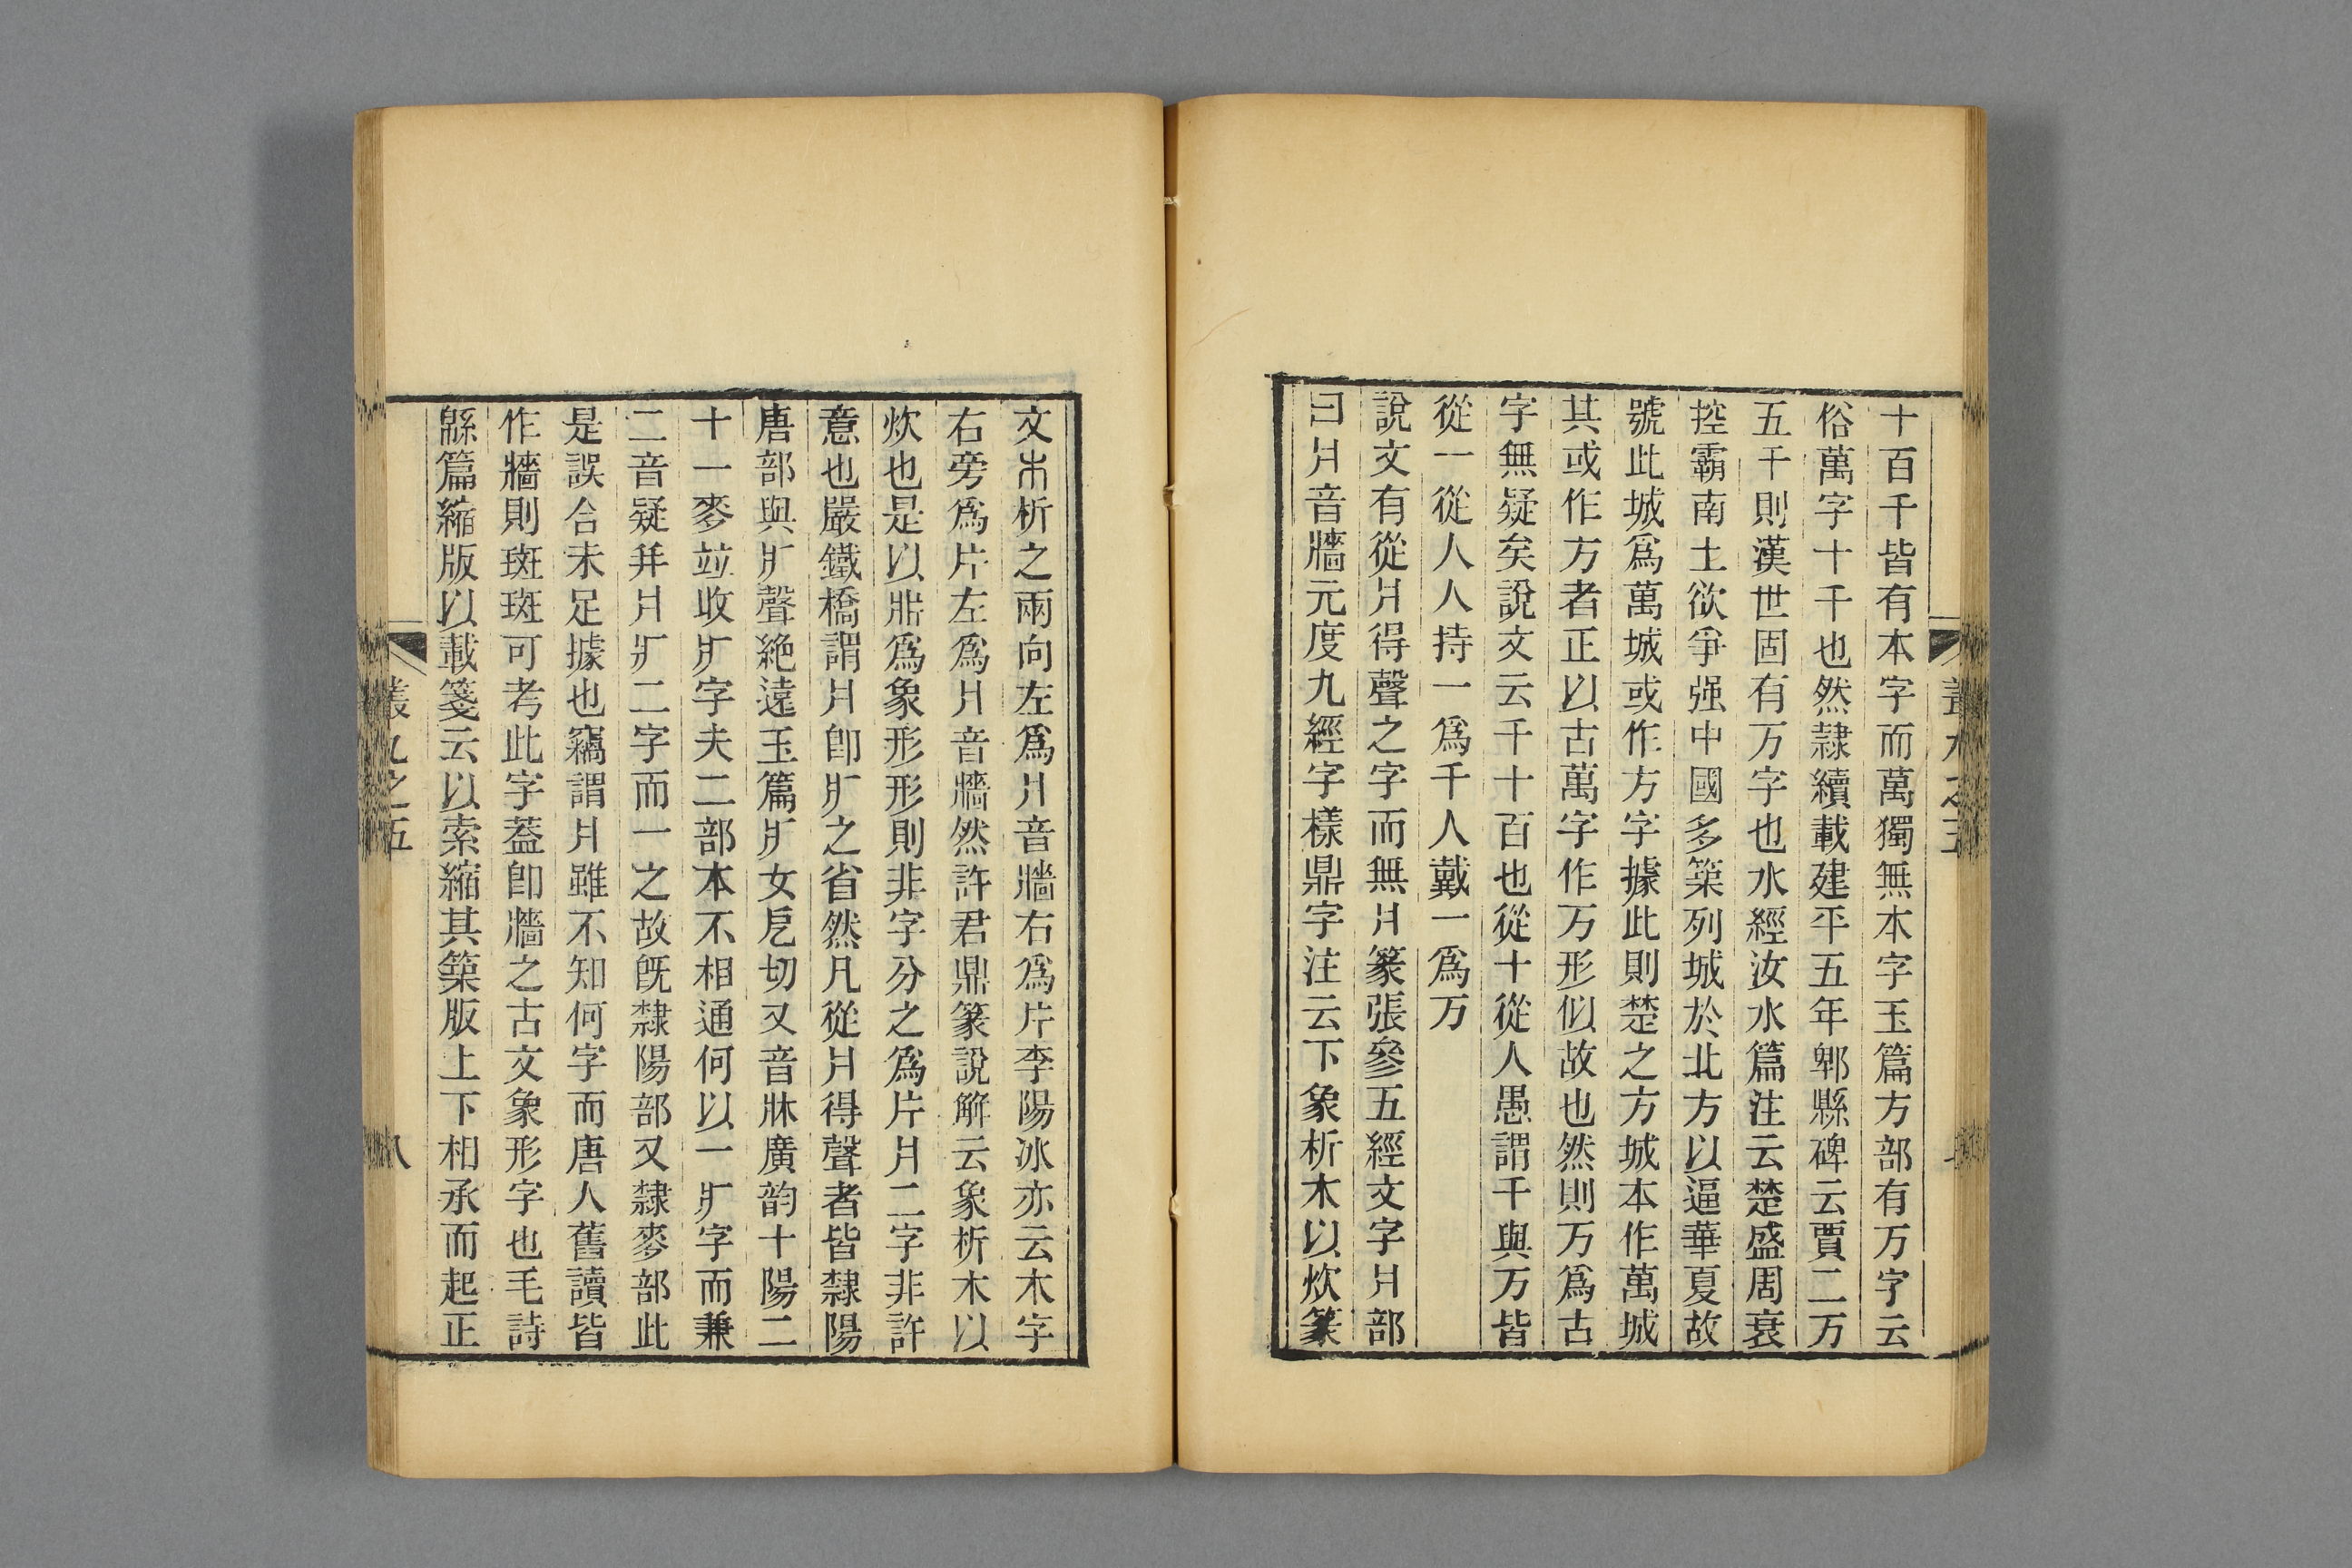 十百千皆有本字而萬獨無本字玉篇方部有万字云
俗萬字十千也然隷續載建平五年郫縣碑云賈二万
五千則漢世固有万字也水經汝水篇注云楚盛周衰
控霸南土欲爭强中國多築列城於北方以逼華夏故
號此城爲萬城或作方字據此則楚之方城本作萬城
其或作方者正以古萬字作万形似故也然則万爲古
字無疑矣說文云千十百也從十從人愚謂千與万皆
從一從人人持一爲千人戴一爲万
說文有從爿得聲之字而無爿篆張參五經文字爿部
曰爿音牆元度九經字樣鼎字注云下象析木以炊篆
文𣎳析之兩向左爲爿音牆右爲片李陽冰亦云木字
右旁爲片左爲爿音牆然許君鼎篆說解云象析木以
炊也是以𤕰爲象形形則非字分之爲片爿二字非許
意也嚴鐵橋謂爿卽疒之省然凡從爿得聲者皆隸陽
唐部與疒聲絶遠玉篇疒女戹切又音牀廣韵十陽二
十一麥竝收疒字夫二部本不相通何以一疒字而兼
二音疑幷爿疒二字而一之故旣隸陽部又隸麥部此
是誤合未足據也竊謂爿雖不知何字而唐人舊讀皆
作牆則斑斑可考此字葢卽牆之古文象形字也毛詩
緜篇縮版以載箋云以索縮其築版上下相承而起正
叢九之五
八